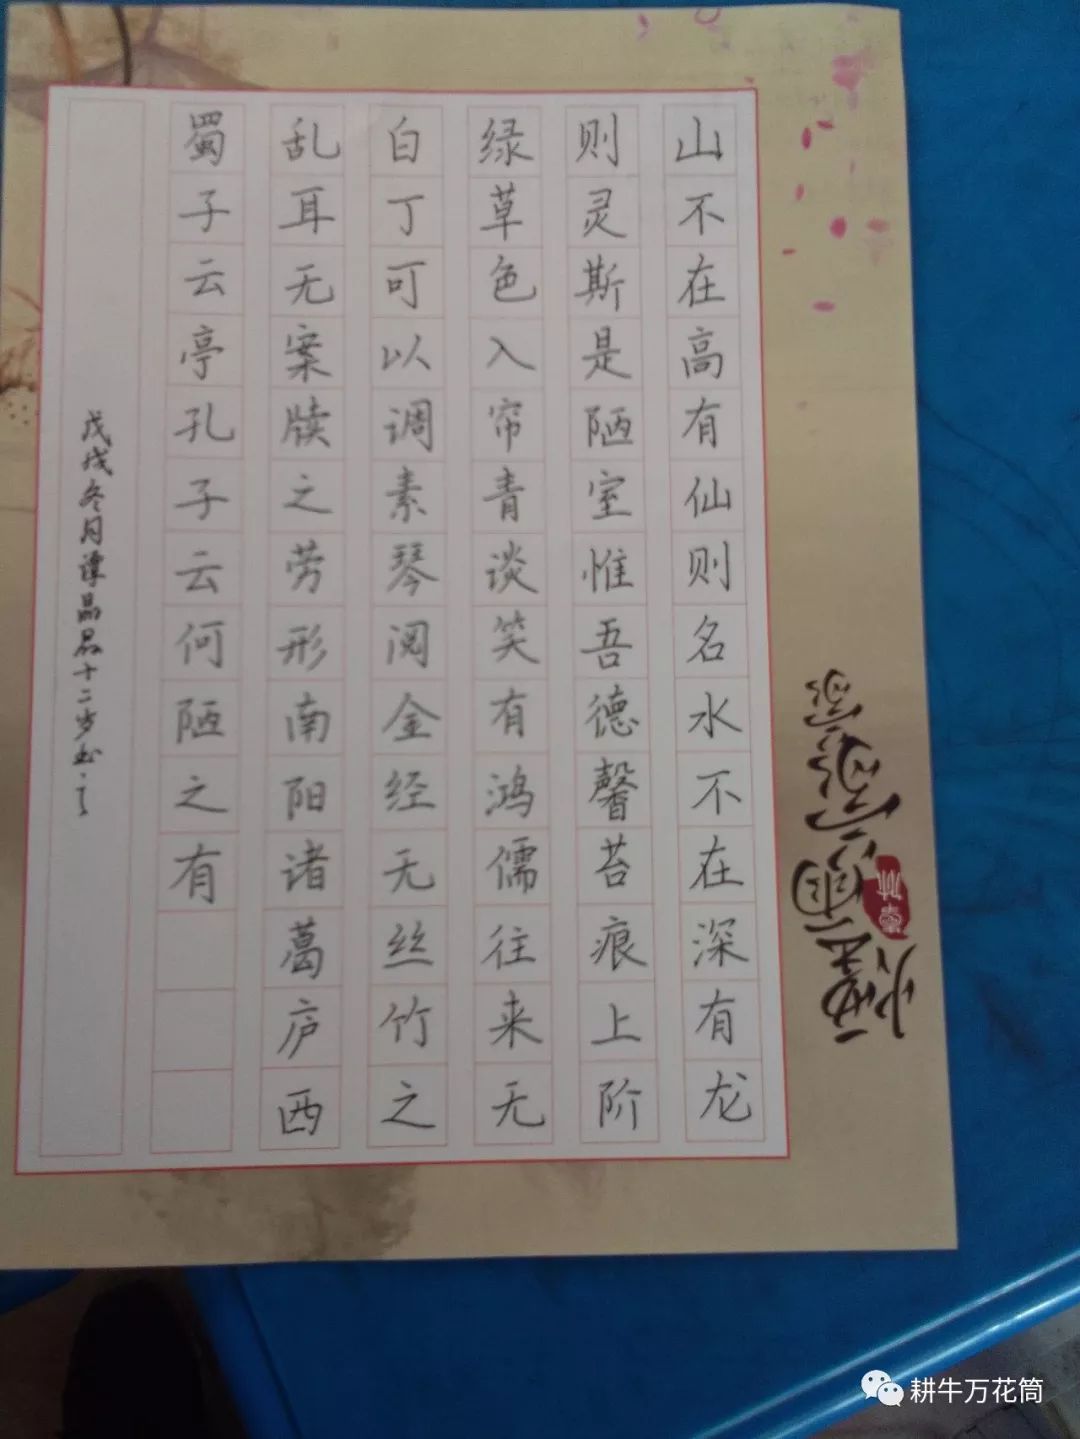 山不在高有仙则名水不在深有龙
则灵斯是陋室惟吾德馨苔痕上阶
绿草色入帘青谈笑有鸿儒往来无
白丁可以调素琴阅金经无丝竹之
乱耳无案牍之劳形南阳诸葛庐西
蜀子云亭孔子云何陋之有
戊戌冬月谭晶晶十二岁书
耕牛万花筒